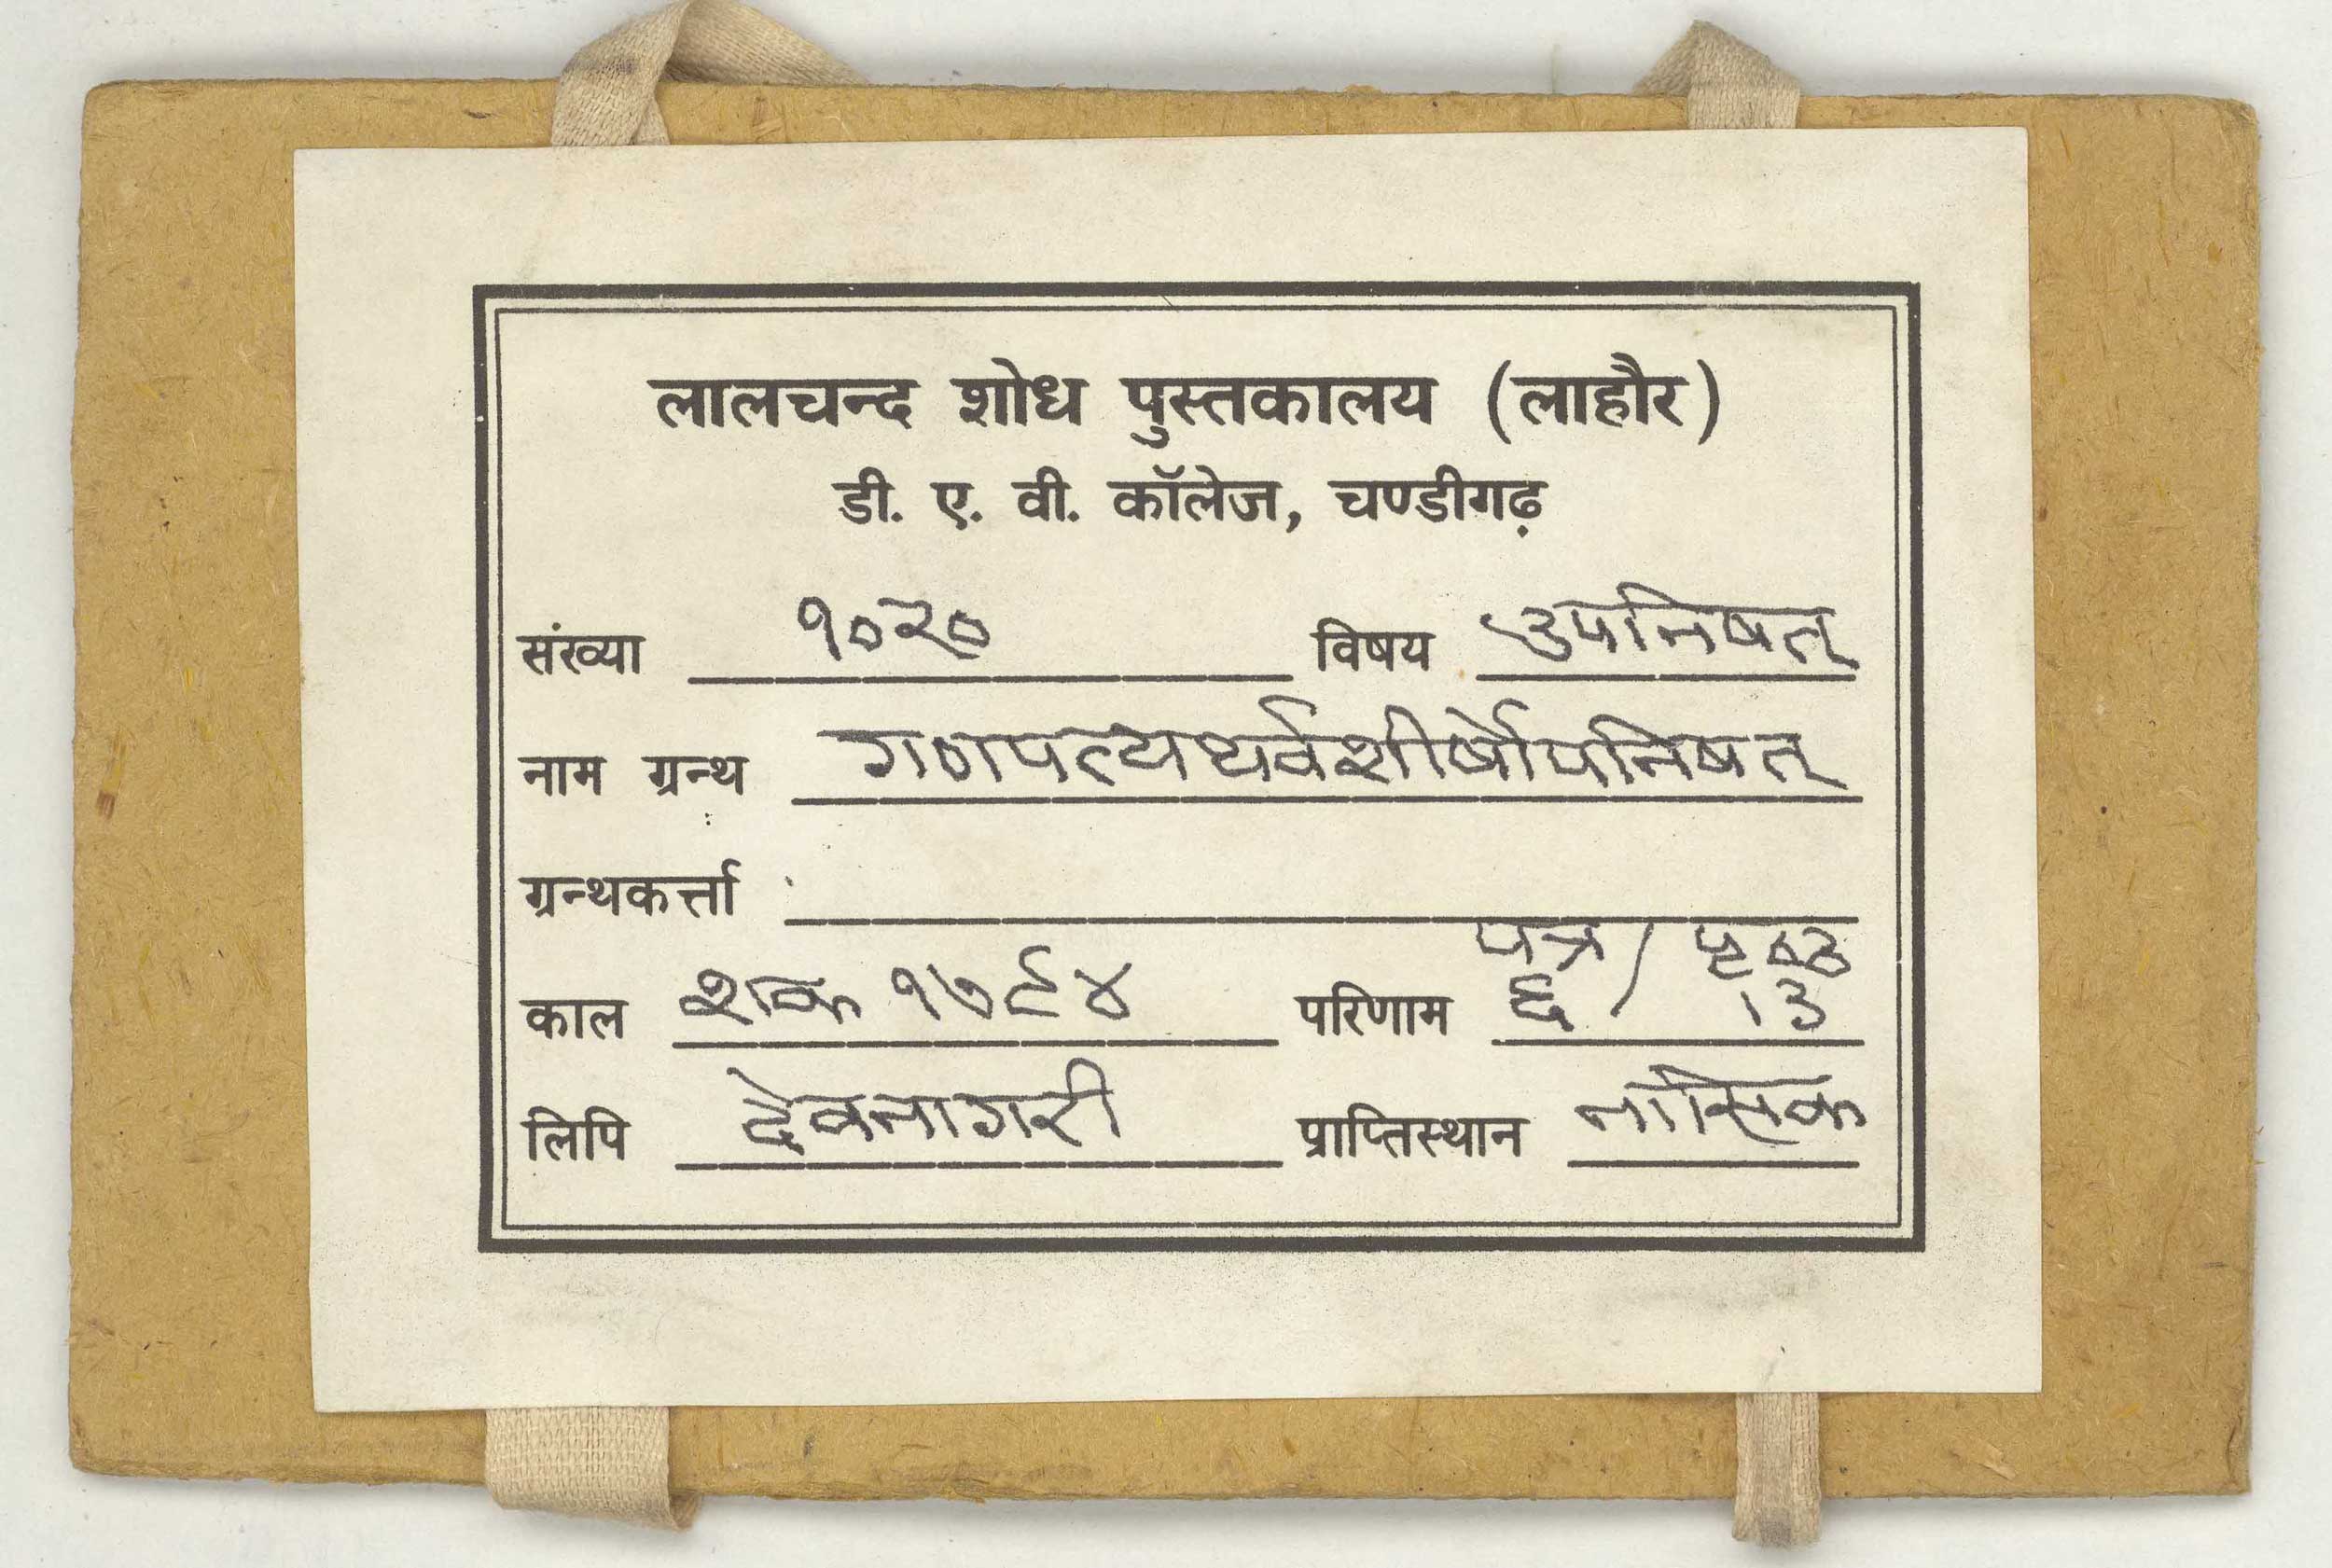 लालचन्द शोध पुस्तकालय (लाहौर)
डी. ए. वी. कॉलेज, चण्डीगढ़
संख्या १०२० विषय उपनिषत्
नाम ग्रन्थ गणपत्यथर्वशीर्षोपनिषत्
ग्रन्थकर्त्ता
पत्र / पृष्ठ
काल शक १७९४ परिणाम ६ / 13
लिपि देवनागरी प्राप्तिस्थान नासिक